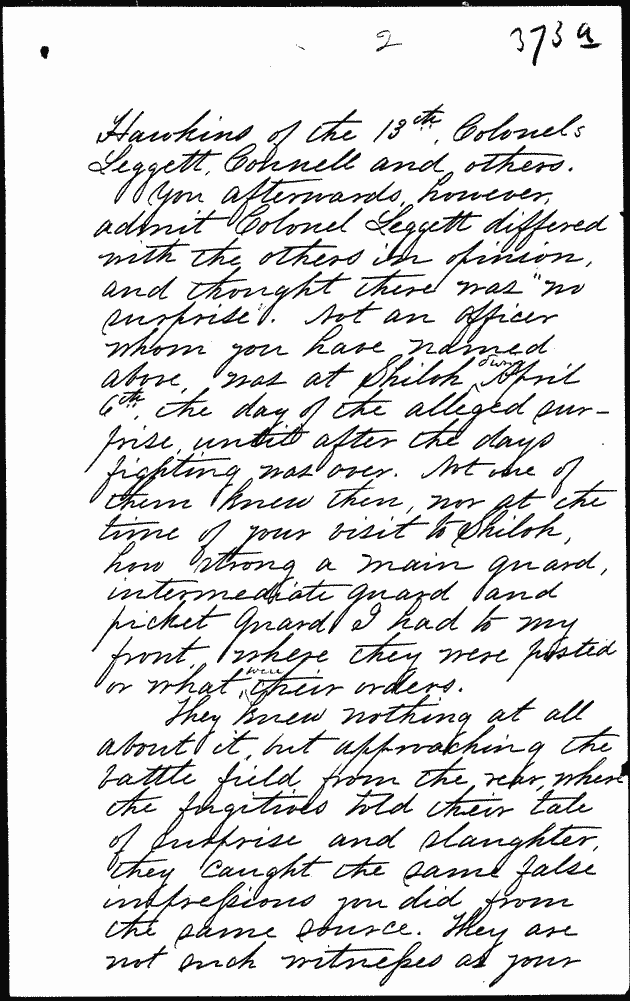 2
373 a
Hawkins of the 13th, Colonels
Leggett, Connell and others.
You afterwards, however,
admit Colonel Leggett differed
with the others in opinion,
and thought there was "no
surprise". Not an officer
whom you have named
above, was at Shiloh, April
6th, the day of the alleged sur-
prise, until after the days
fighting was over. Not one of
them knew then, nor at the
time of your visit to Shiloh,
how strong a main guard,
intermediate guard and
picket guard I had to my
front, where they were posted
or what were their orders.
They knew nothing at all
about it, but approaching the
battle field from the rear, where
the fugitives told their tale
of surprise and slaughter,
they caught the same false
impressions you did from
the same source. They are
not such witnesses as your